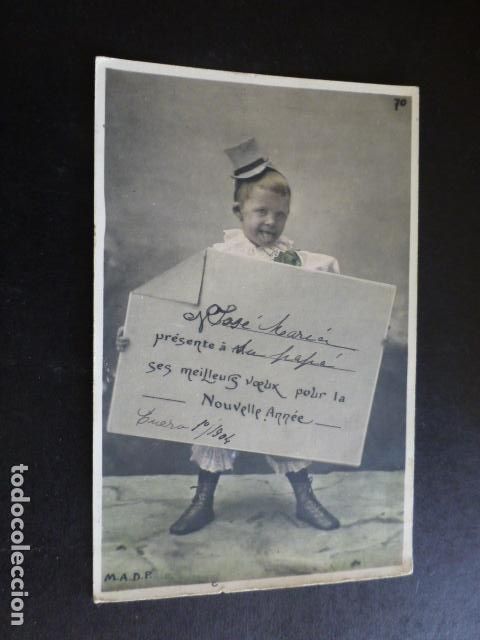 7º
M José María
présente à su papá
ses meilleurs vœux pour la
Nouvelle Année
Enero 1º/1904
M.A.D.P.
todocoleccion